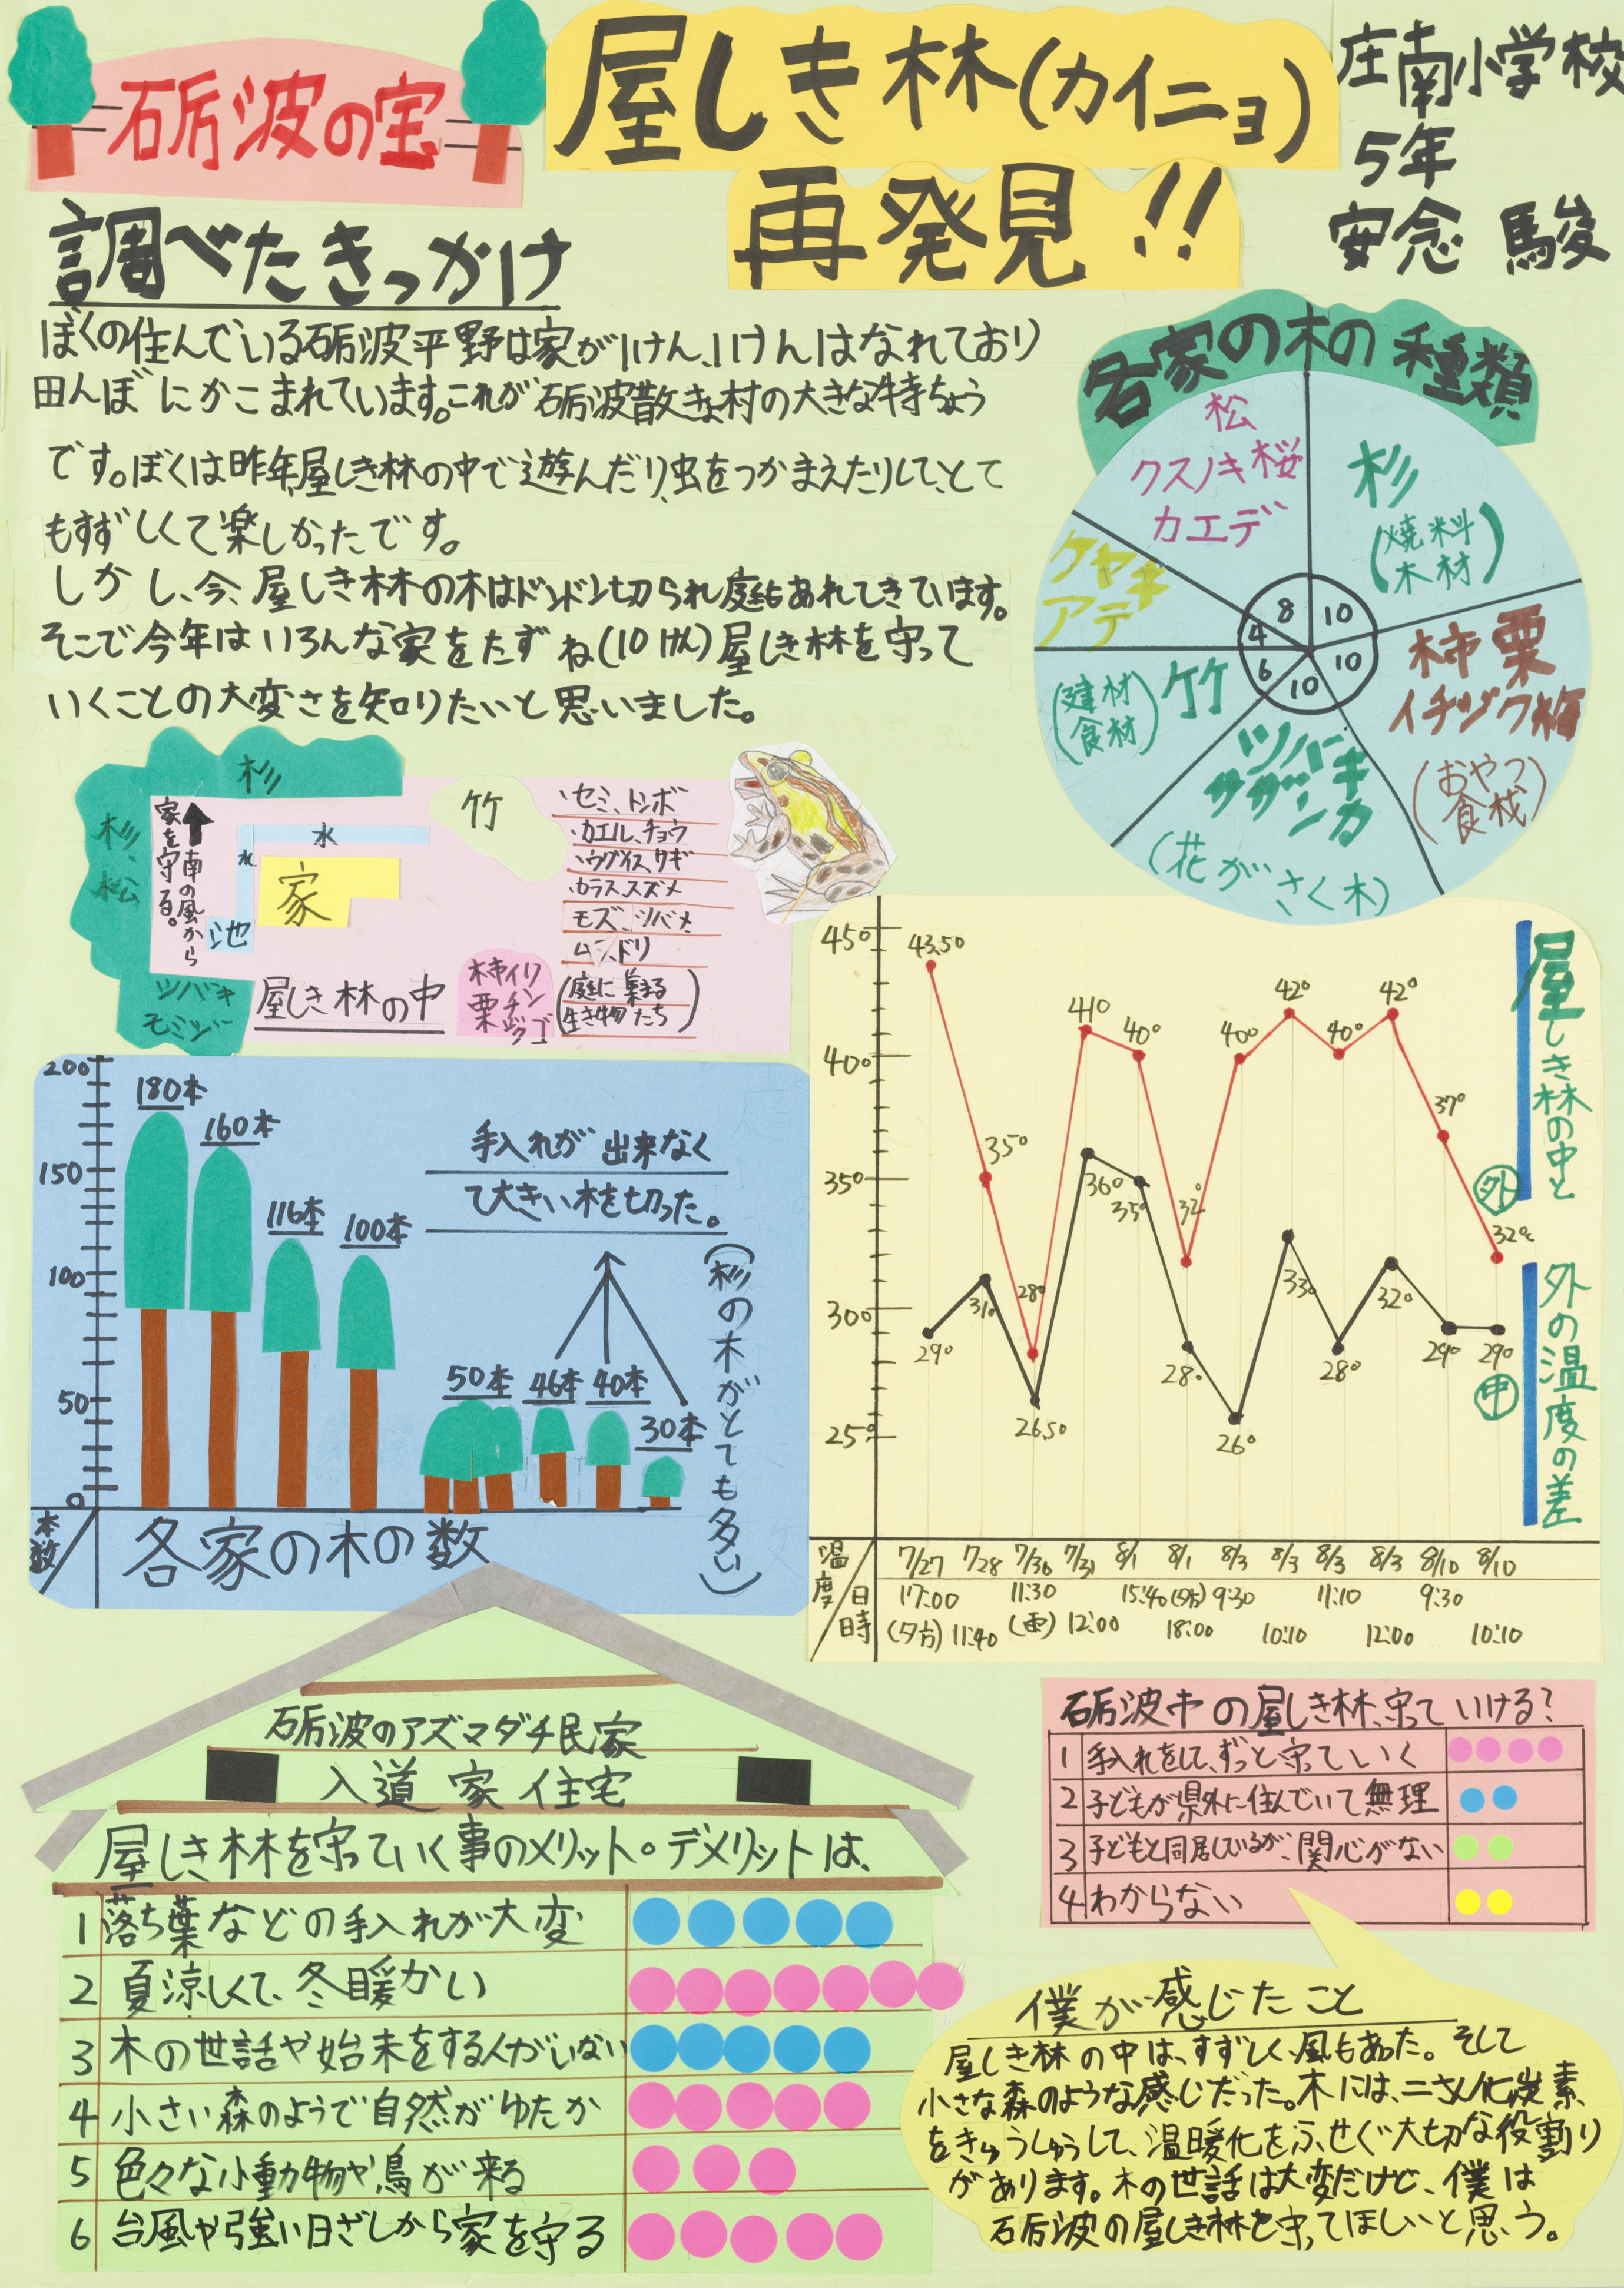 砺波の宝
屋しき林(カイニョ)
再発見!!
庄南小学校
5年
安念 駿
調べたきっかけ
ぼくの住んでいる砺波平野は家が1けん、1けんはなれており
田んぼにかこまれています。これが砺波散きょ村の大きな特ちょう
です。ぼくは昨年、屋しき林の中で遊んだり、虫をつかまえたりして、とて
もすずしくて楽しかったです。
しかし、今、屋しき林の木はドンドン切られ庭もあれてきています。
そこで今年はいろんな家をたずね(10けん)屋しき林を守って
いくことの大変さを知りたいと思いました。
各家の木の種類
松
クスノキ 桜
カエデ
杉
(燃料
木材)
ケヤキ
アテ
柿 栗
イチジク 梅
(おやつ
食材)
竹
(建材
食材)
ツバキ
サザンカ
(花がさく木)
8
10
4
10
6
10
杉
杉、
松
家を守る。
南の風から
水
水
家
池
竹
ツバキ
モミジ
屋しき林の中
柿 イチジク リンゴ
栗
・セミ、トンボ
・カエル、チョウ
・ウグイス、サギ
・カラス、スズメ
モズ、ツバメ
ムクドリ
(庭に集まる
生き物たち)
200
150
100
50
0
本数
180本
160本
116本
100本
50本
46本
40本
30本
手入れが出来なく
て大きい木を切った。
(杉の木がとても多い)
各家の木の数
屋しき林の中と
外の温度の差
外
中
45°
40°
35°
30°
25°
43.5°
35°
28°
41°
40°
32°
40°
42°
40°
42°
37°
32°
29°
31°
26.5°
36°
35°
28°
26°
33°
28°
32°
29°
29°
温度
日時
7/27 7/28 7/30 7/31 8/1 8/1 8/3 8/3 8/3 8/3 8/10 8/10
17:00 11:30 15:40 (夕方) 9:30 11:10 9:30
(夕方) 11:40 (雨) 12:00 18:00 10:10 12:00 10:10
砺波のアズマダチ民家
入道家住宅
屋しき林を守っていく事のメリット・デメリットは、
1 落ち葉などの手入れが大変
2 夏涼しくて、冬暖かい
3 木の世話や始末をする人がいない
4 小さい森のようで自然がゆたか
5 色々な小動物や鳥が来る
6 台風や強い日ざしから家を守る
砺波中の屋しき林、守っていける?
1 手入れをして、ずっと守っていく
2 子どもが県外に住んでいて無理
3 子どもと同居しているが、関心がない
4 わからない
僕が感じたこと
屋しき林の中は、すずしく、風もあった。そして
小さな森のような感じだった。木には、二さん化炭素
をきゅうしゅうして、温暖化をふせぐ大切な役割り
があります。木の世話は大変だけど、僕は
砺波の屋しき林を守ってほしいと思う。